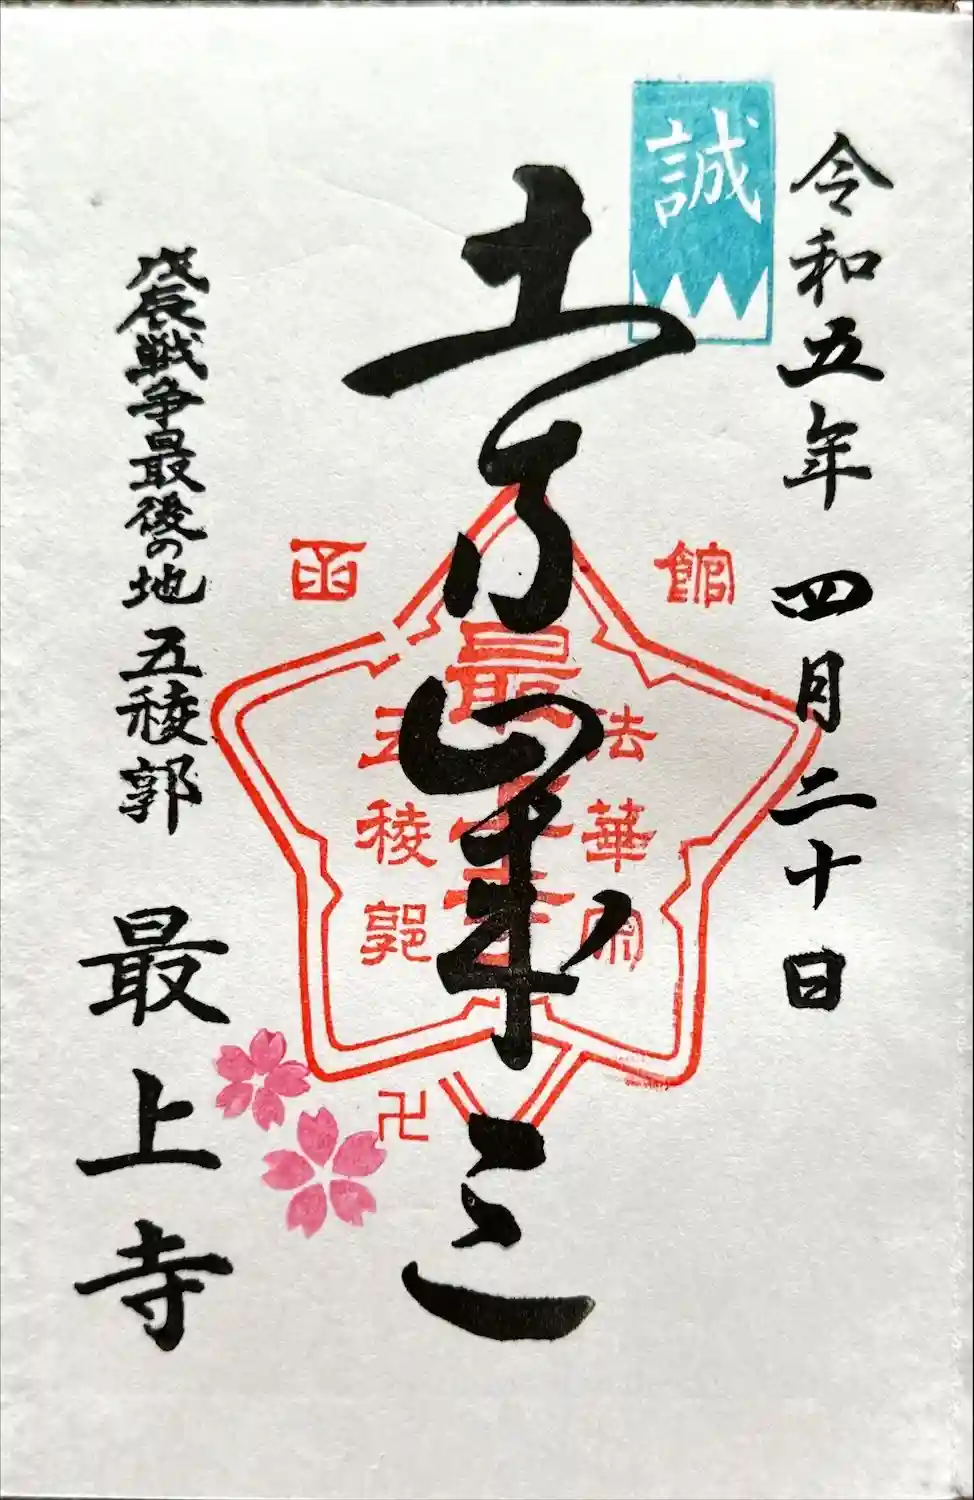 令和五年 四月二十日
誠
土方歳三
函館
法華宗
最上寺
五稜郭
卍
戊辰戦争最後の地 五稜郭
最上寺